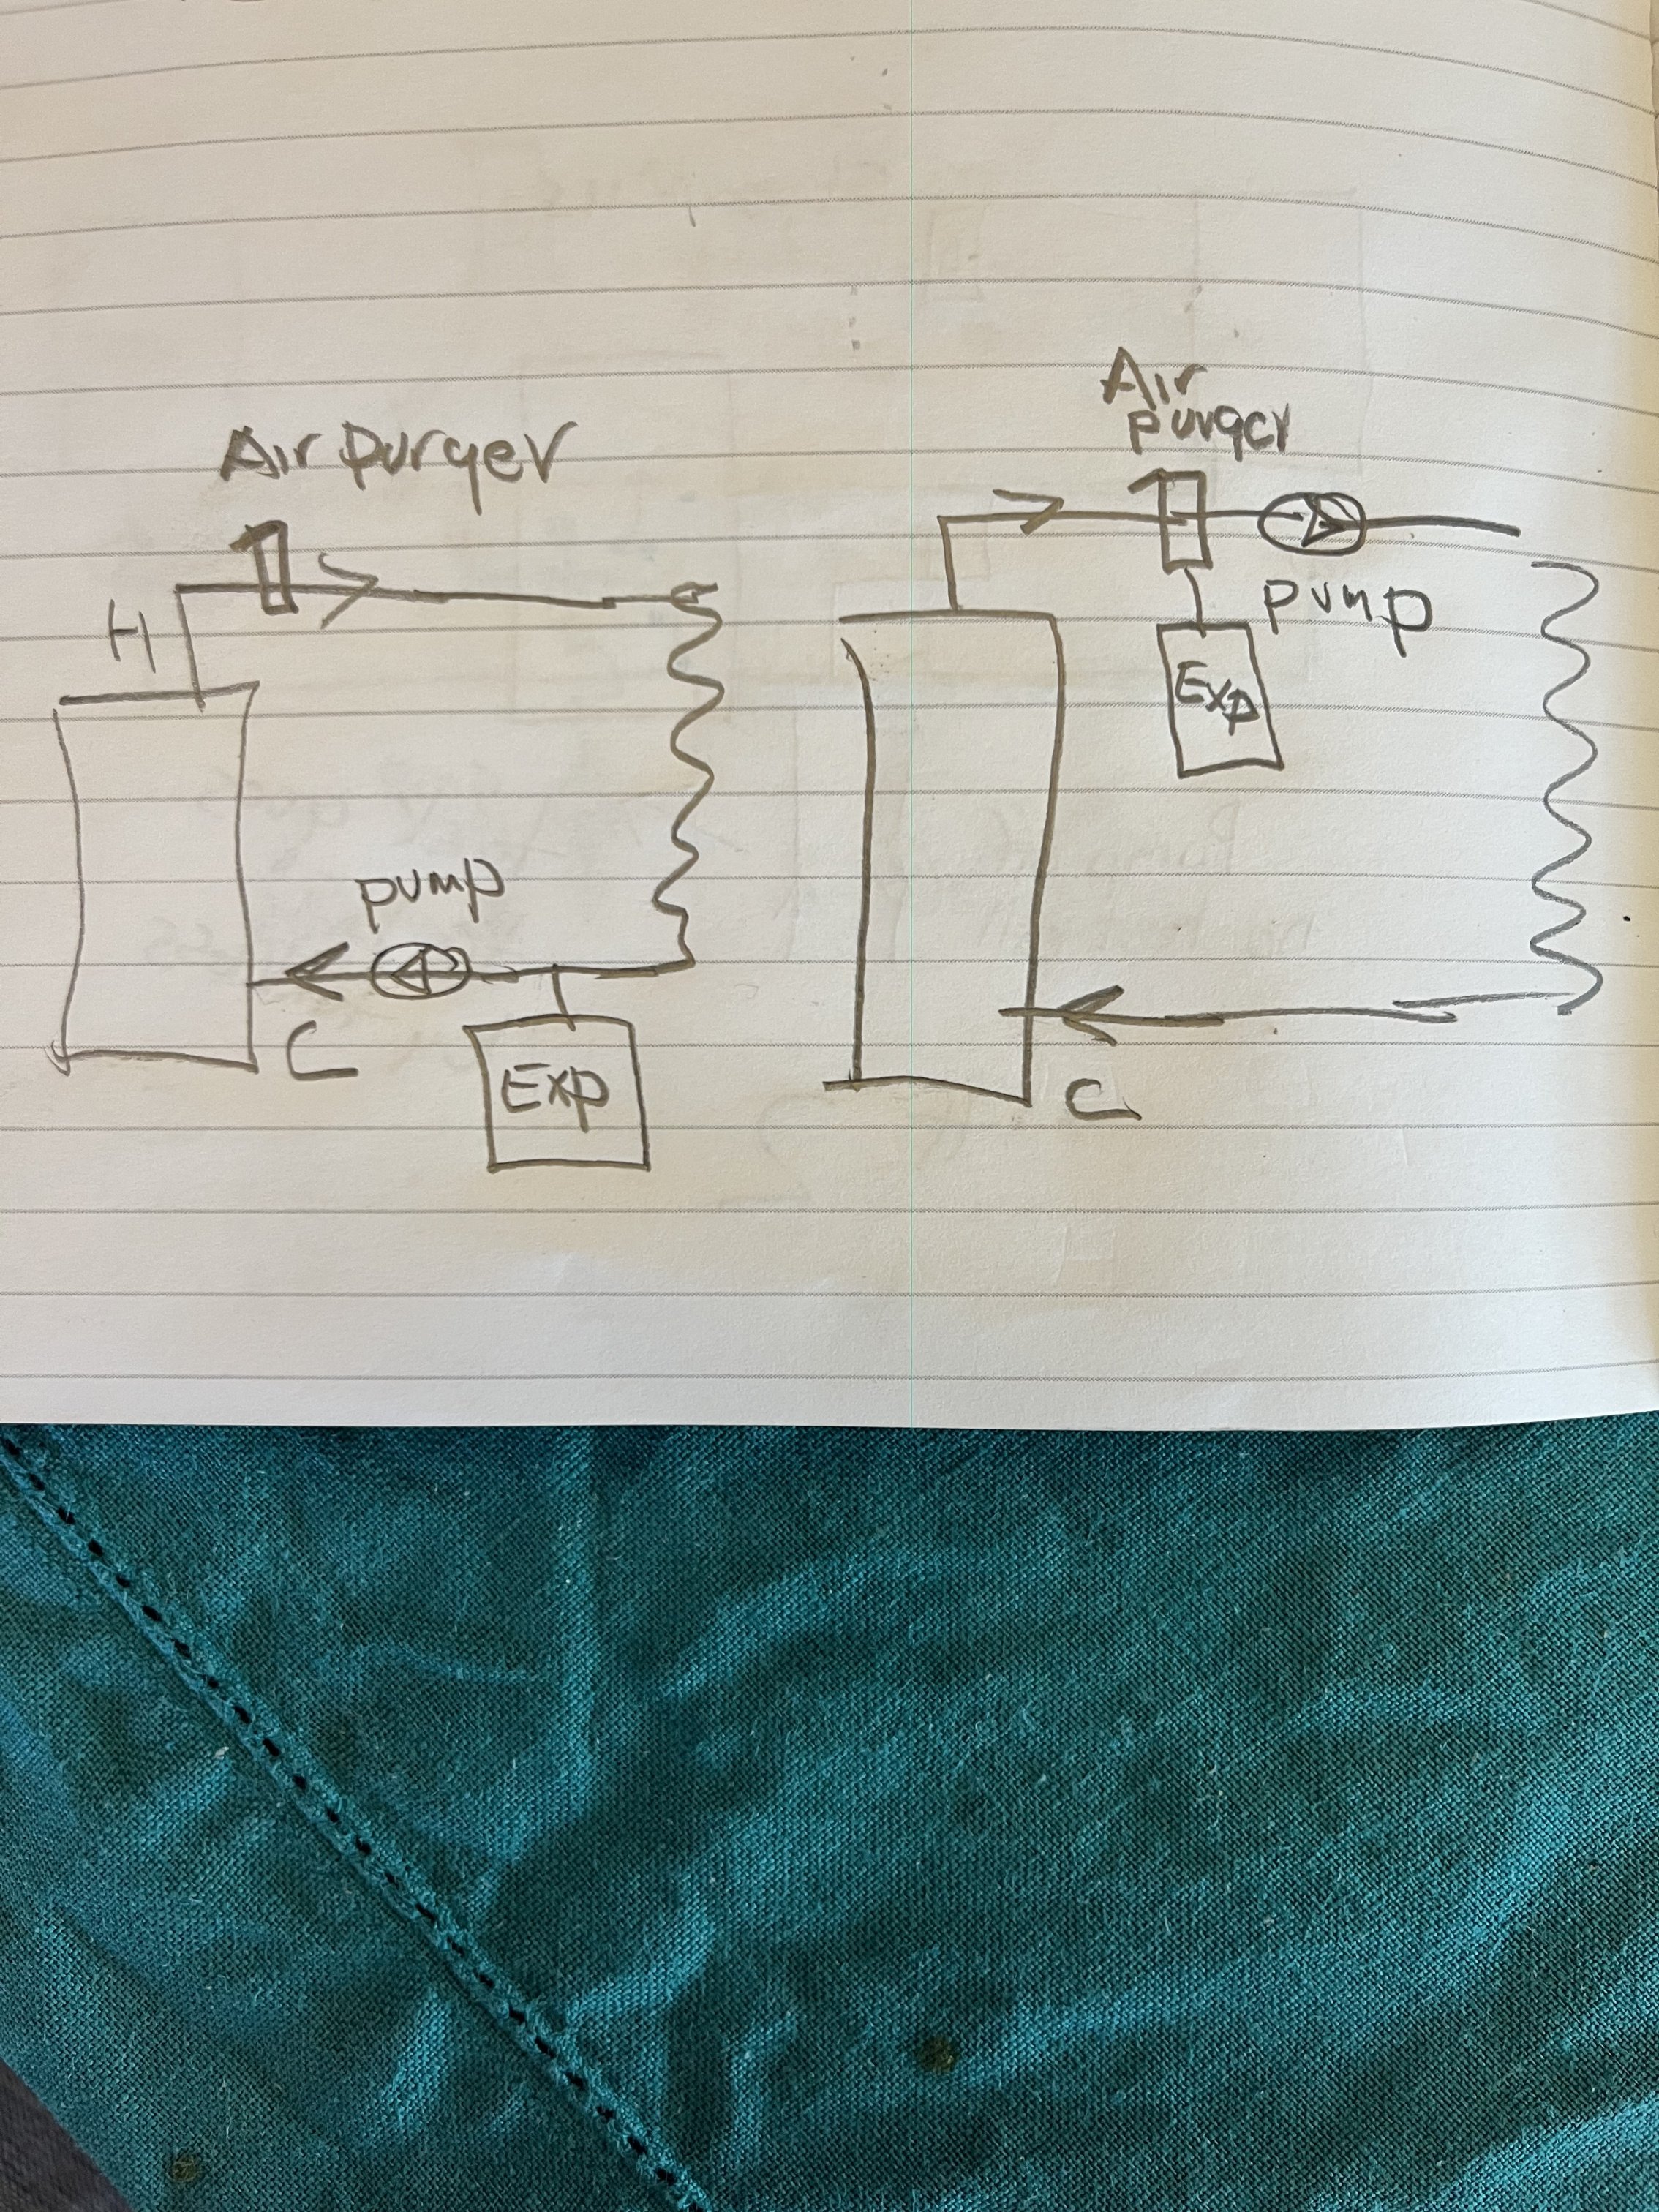 Air purger
H
pump
C
Exp
Air
purger
pump
Exp
C